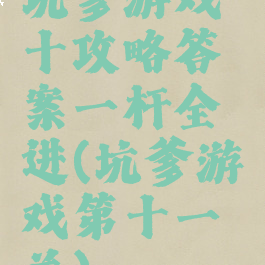 坑爹游戏
十攻略答
案一杆全
进(坑爹游
戏第十一
关)